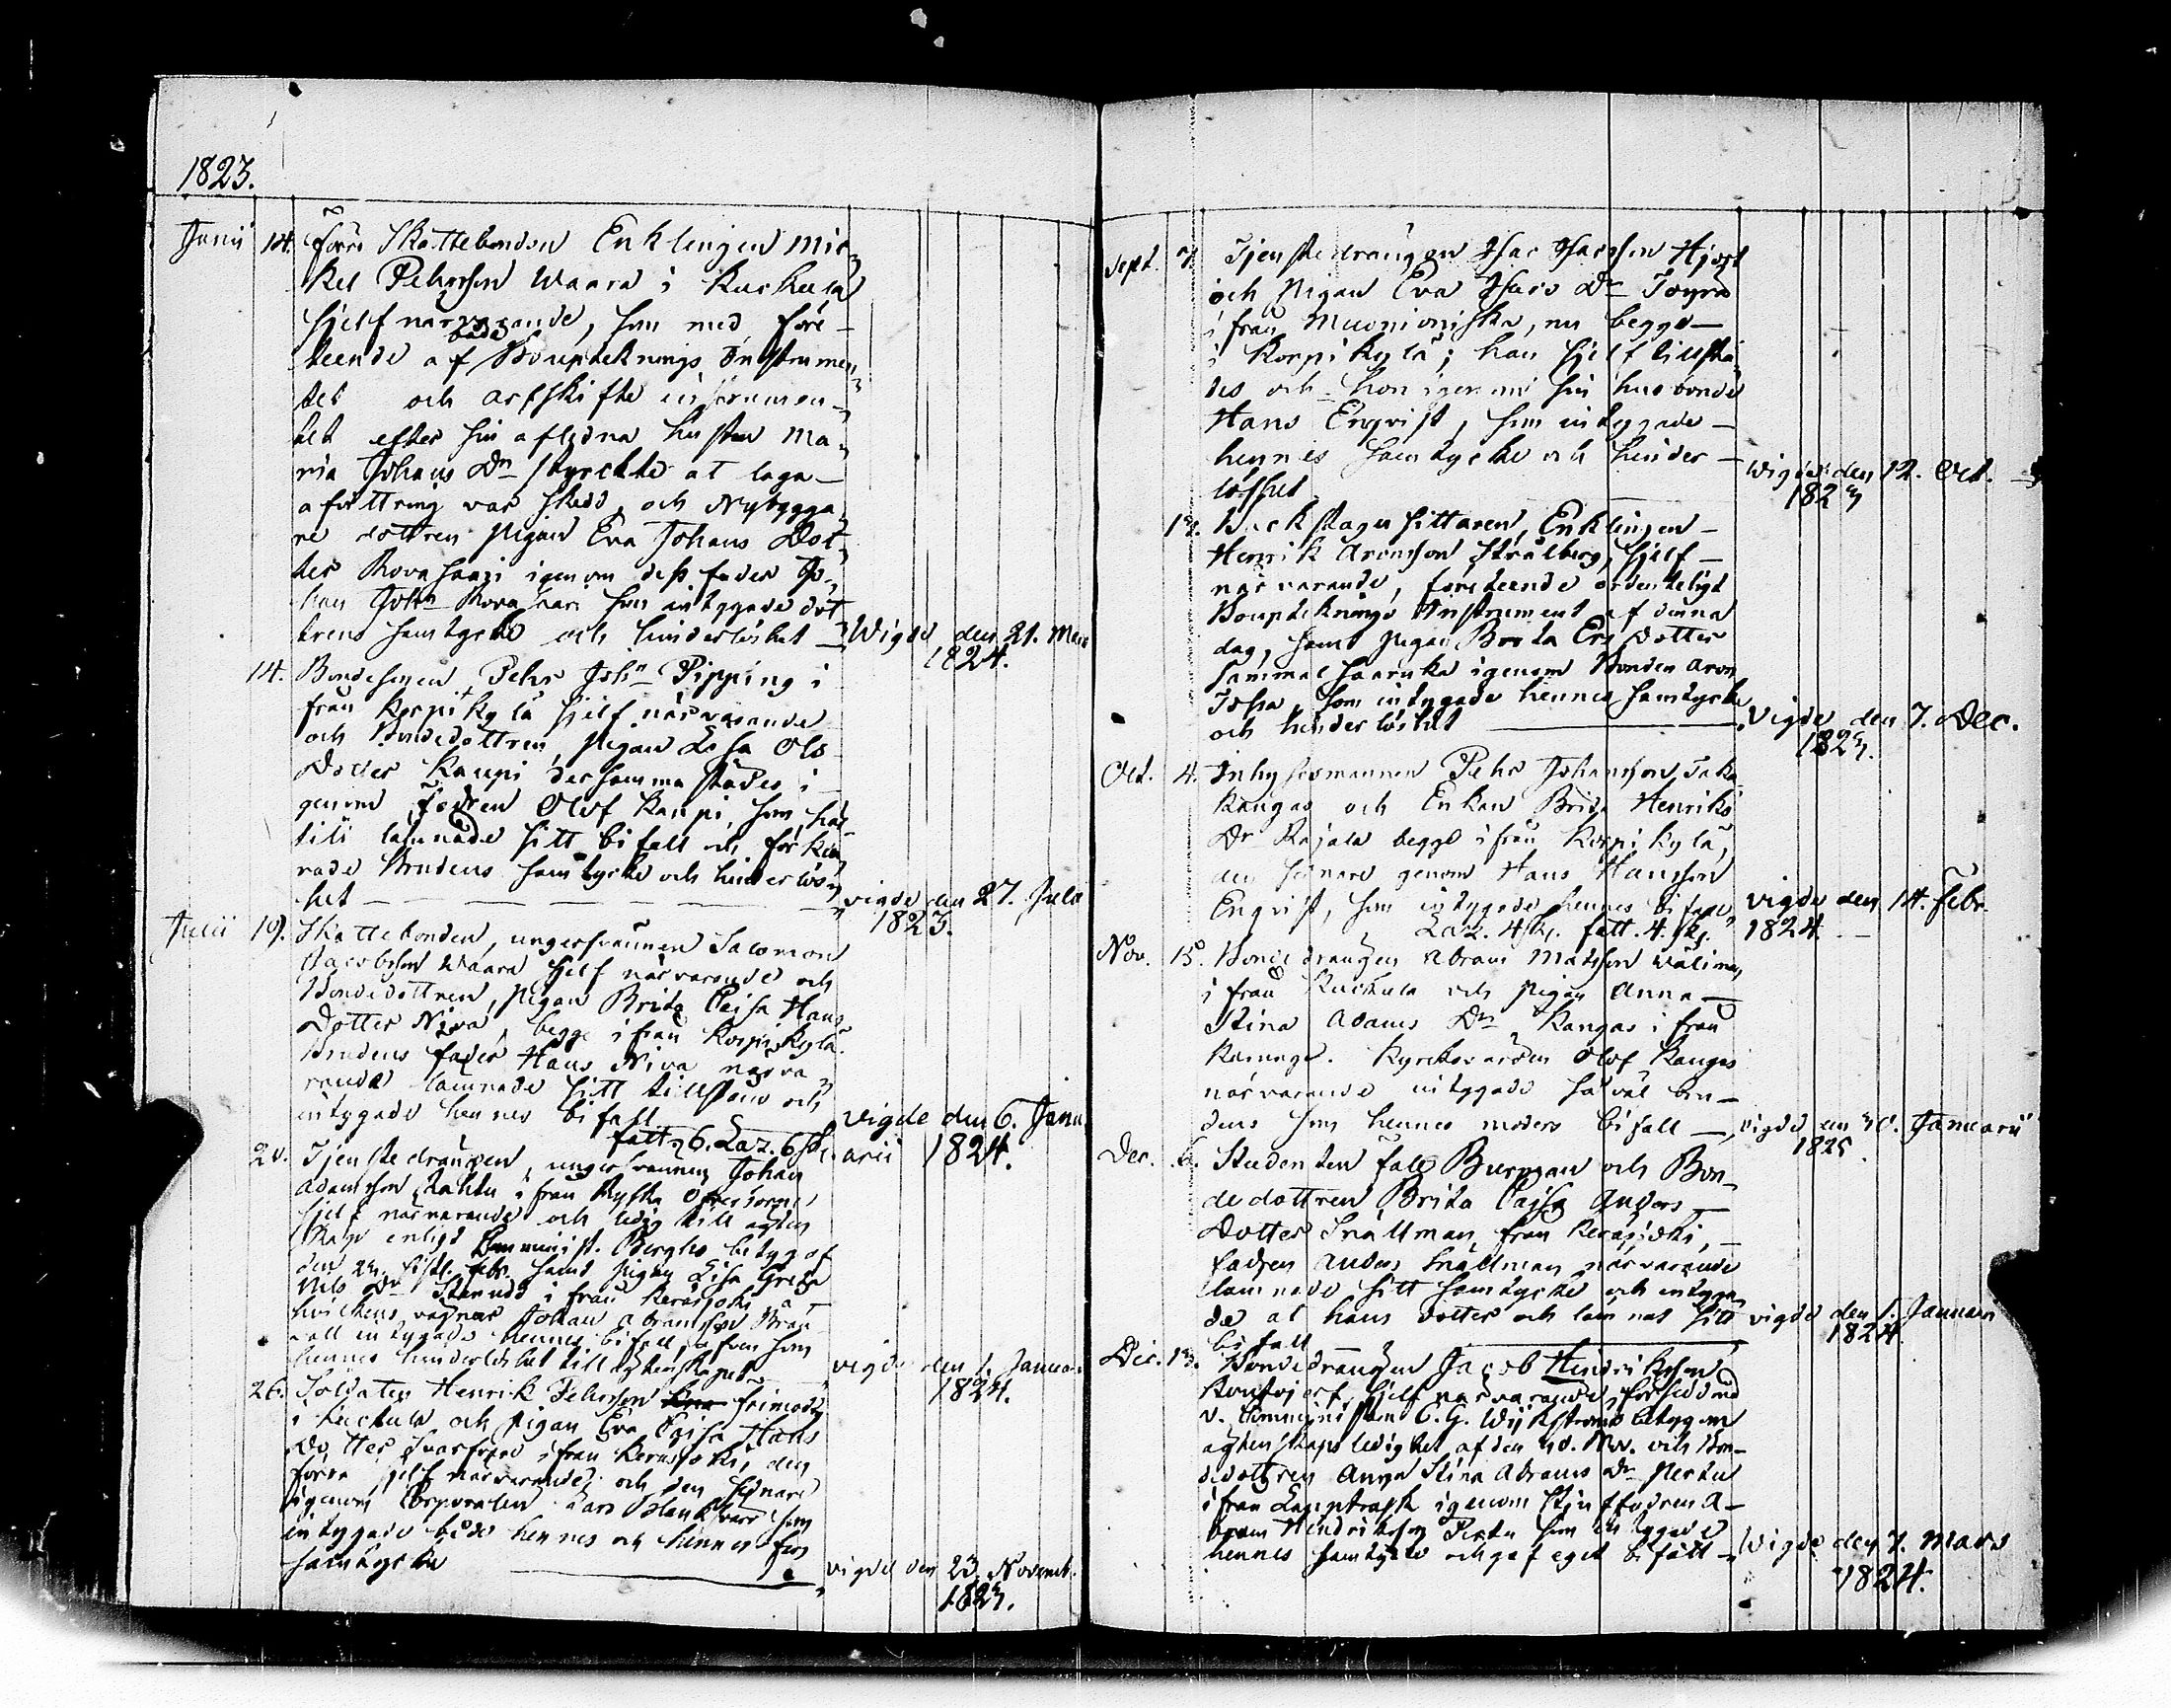 1823.
Junii 14. Förre Skattebonden Enklingen Mic-
kel Pehrsson Waara i Kuckula
sjelf närvarande, som med före-
både
teende af Bouptecknings Instrumen-
tet och arfskifte instrumen-
tet efter sin aflidna hustru Ma-
ria Johans Dr styrckte at laga
afvittring var skedd, och Nybygga-
re dottren pigan Eva Johans Dot-
ter Rovahaari igenom dess fader Jo-
han Johsn Rovahaari som intygade dot-
trens samtycke och hinderlöshet Wigde den 21. Mars
1824.
14. Bondesonen Pehr Johsn Pipping i
från Korpikylä sjelf närvarande
och Bondedottren, pigan Lisa Ols
Dotter Kaupi dersammastädes i
genom fadren Olof Kaupi, som här
till lämnade sitt bifall och förkla-
rade Brudens samtycke och hinderlös-
het vigde den 27. Julii
1823.
Junii 19. Skattebonden, ungersvannen Salomon
Jacobsson Waara sjelf närvarande och
Bondedottren, pigan Brita Caisa Hans
Dotter Niva, begge ifrån Korpikylä.
Brudens fader Hans Niva närva-
rande lämnade sitt tillstånd och
intygade hennes bifall vigde den 6. Janu
fatt. 6. Laz. 6 sk. arii 1824.
20. Tjenstedrängen, ungersvannen Johan
Adamsson Lahtu ifrån Ryska Öfvertorneå
sjelf närvarande och ledig till ägten
skap enligt Comminist. Berghs betyg af
den 23. sistl. febr. samt pigan Lisa Greta
Nils Dr Stennudd ifrån Keräsjoki å
hvilkens vägnar Johan Abramsson Bran-
vall intygade hennes bifall, äfven som
hennes hinderlöshet till ägtenskapet vigde den 1. Januar.
1824.
26. Soldaten Henrik Pehrsson frimodig
i Kuckula och pigan Eva Caisa Hans
Dotter Svarfvare ifrån Keräsjoki, den
förra sjelf närvarande; och den sednare
igenom Corporalen Lars Blank som
intygade både hennes och hennes fars
samtycke vigde den 23. Novemb.
1823.
Sept. 7. Tjenstedrängen Isac Isacsson Hjort
och pigan Eva Isacs Dr Töyrä
ifrån Muonioniska, nu begge
i Korpikylä; han sjelf tillstä-
des och hon igenom sin husbonde
Hans Enqvist, som intygade
hennes samtycke och hinder-
löshet wigde den 12. Oct.
1823
13. Backstugusittaren, Enklingen
Henrik Aronsson Strålberg, sjelf
närvarande, företeende ordenteligt
Bouptecknings Instrument af denna
dag, samt pigan Brita Ers dotter
Sammalhaaruka igenom Bonden Aron
Joha, som intygade hennes samtycke
och hinderlöshet vigde den 7. Dec.
1823.
Oct. 4. Inhysesmannen Pehr Johansson Taka
kangas och Enkan Brita Henriks
Dr Rajala begge ifrån Korpikylä,
den sednare genom Hans Hansson
Enqvist, som intygade hennes bifall vigde den 14. Febr.
Laz. 4 sk. fatt. 4. sk. 1824.
Nov. 15. Bondedrängen Abram Matsson Wälimaa
ifrån Kuckula och pigan Anna
Stina Adams Dr Kangas ifrån
Kainunge. Kyrckovärden Olof Kangas
närvarande intygade så väl bru-
dens som hennes moders bifall vigde den 30. Januarii
1825
Dec. 6. Studenten Falk Burman och Bon-
dedottren Brita Cajsa Anders
Dotter Snällman från Keräsjoki,
fadren Anders Snällman närvarande
lämnade sitt samtycke och intyga-
de at hans dotter och lämnat sitt vigde den 1. Januari
bifall 1824
Dec. 13. Bondedrängen Jacob Hindricksson
sjelf närvarande, försedd med
v. Comministern C. G. Wijkströms betyg om
ägtenskaps ledighet af den 30. Nov. och Bon-
dedottren Anna Stina Abrams Dr Pertu
ifrån Lampträsk igenom stjuffadren A-
bram Hindriksson Pertu som intygade
hennes samtycke och gaf eget bifall Wigde den 7. Mars
1824.